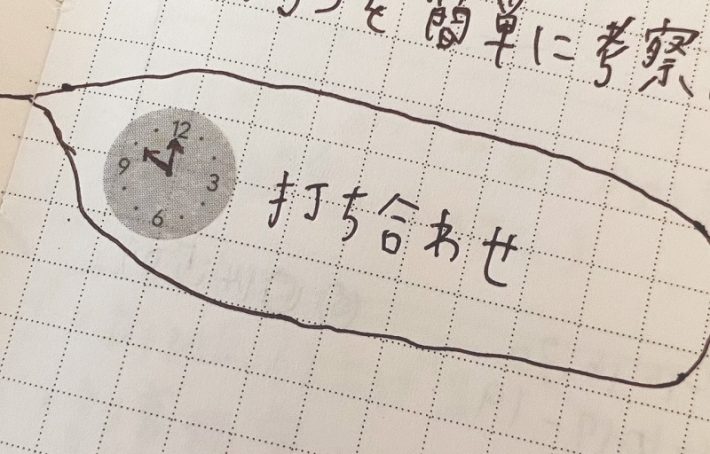 を簡単に考察
12
9
3
6
打ち合わせ